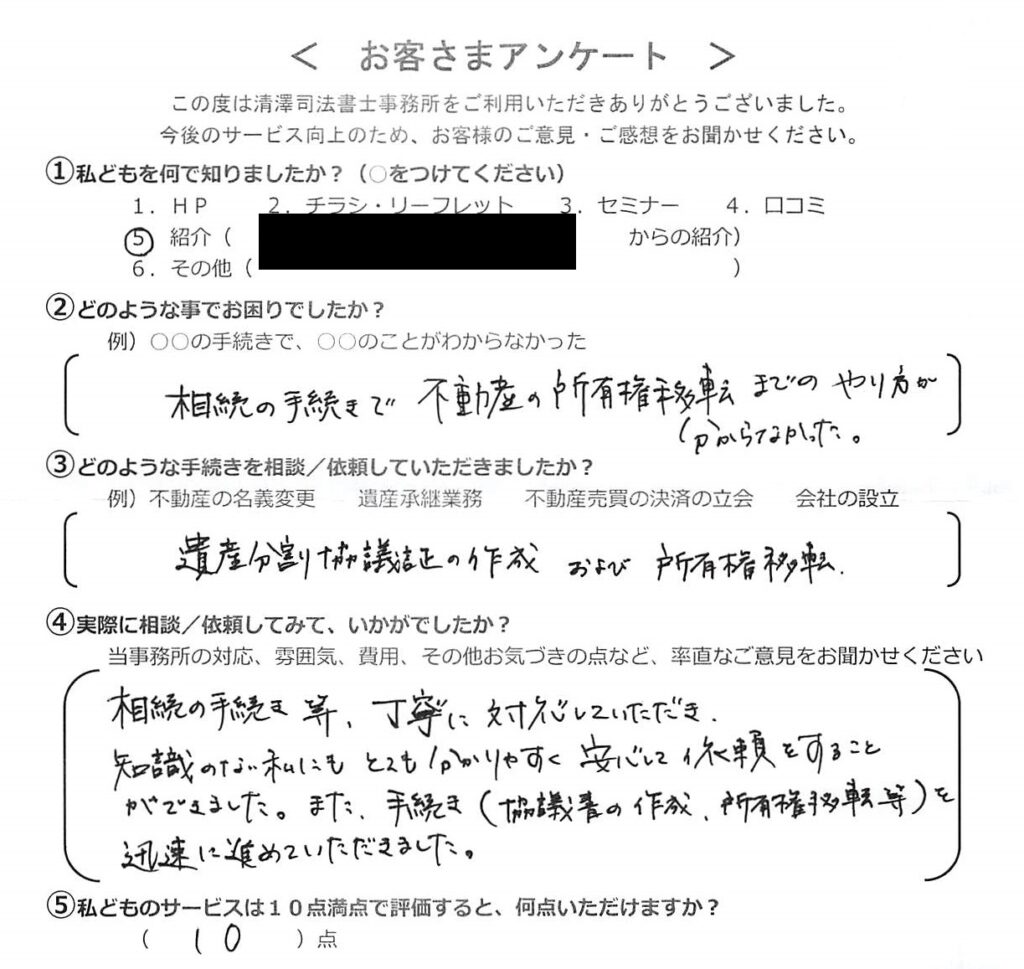 ＜ お客さまアンケート ＞
この度は清澤司法書士事務所をご利用いただきありがとうございました。
今後のサービス向上のため、お客様のご意見・ご感想をお聞かせください。
①私どもを何で知りましたか？（○をつけてください）
１．ＨＰ ２．チラシ・リーフレット ３．セミナー ４．口コミ
５ 紹介（ からの紹介）
６．その他（ ）
②どのような事でお困りでしたか？
例）○○の手続きで、○○のことがわからなかった
相続の手続きで 不動産の所有権移転 までの やり方が
分からなかった。
③どのような手続きを相談／依頼していただきましたか？
例）不動産の名義変更 遺産承継業務 不動産売買の決済の立会 会社の設立
遺産分割協議証の作成 および 所有権移転.
④実際に相談／依頼してみて、いかがでしたか？
当事務所の対応、雰囲気、費用、その他お気づきの点など、率直なご意見をお聞かせください
相続の手続き 等、丁寧に 対応していただき、
知識のない私にも とても分かりやすく 安心して 依頼をすること
ができました。また、手続き（協議書の作成、所有権移転等）を
迅速に進めていただきました。
⑤私どものサービスは１０点満点で評価すると、何点いただけますか？
（ 10 ）点